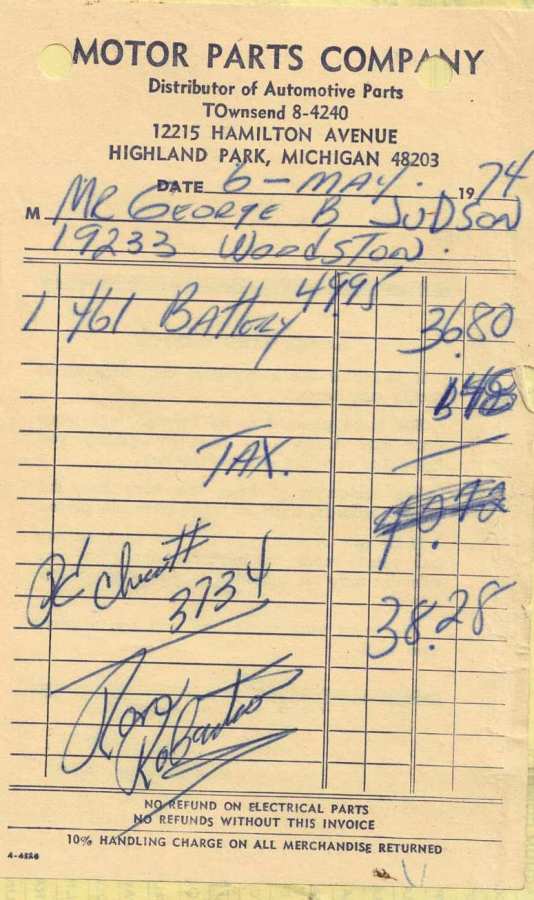 MOTOR PARTS COMPANY
Distributor of Automotive Parts
TOwnsend 8-4240
12215 HAMILTON AVENUE
HIGHLAND PARK, MICHIGAN 48203
DATE 6 - MAY. 1974
M MR GEORGE B JUDSON
19233 WOODSTON.
1 461 BATTERY 49.95 36.80
1.48
TAX.
38.28
Rc'd Check # 3734
NO REFUND ON ELECTRICAL PARTS
NO REFUNDS WITHOUT THIS INVOICE
10% HANDLING CHARGE ON ALL MERCHANDISE RETURNED